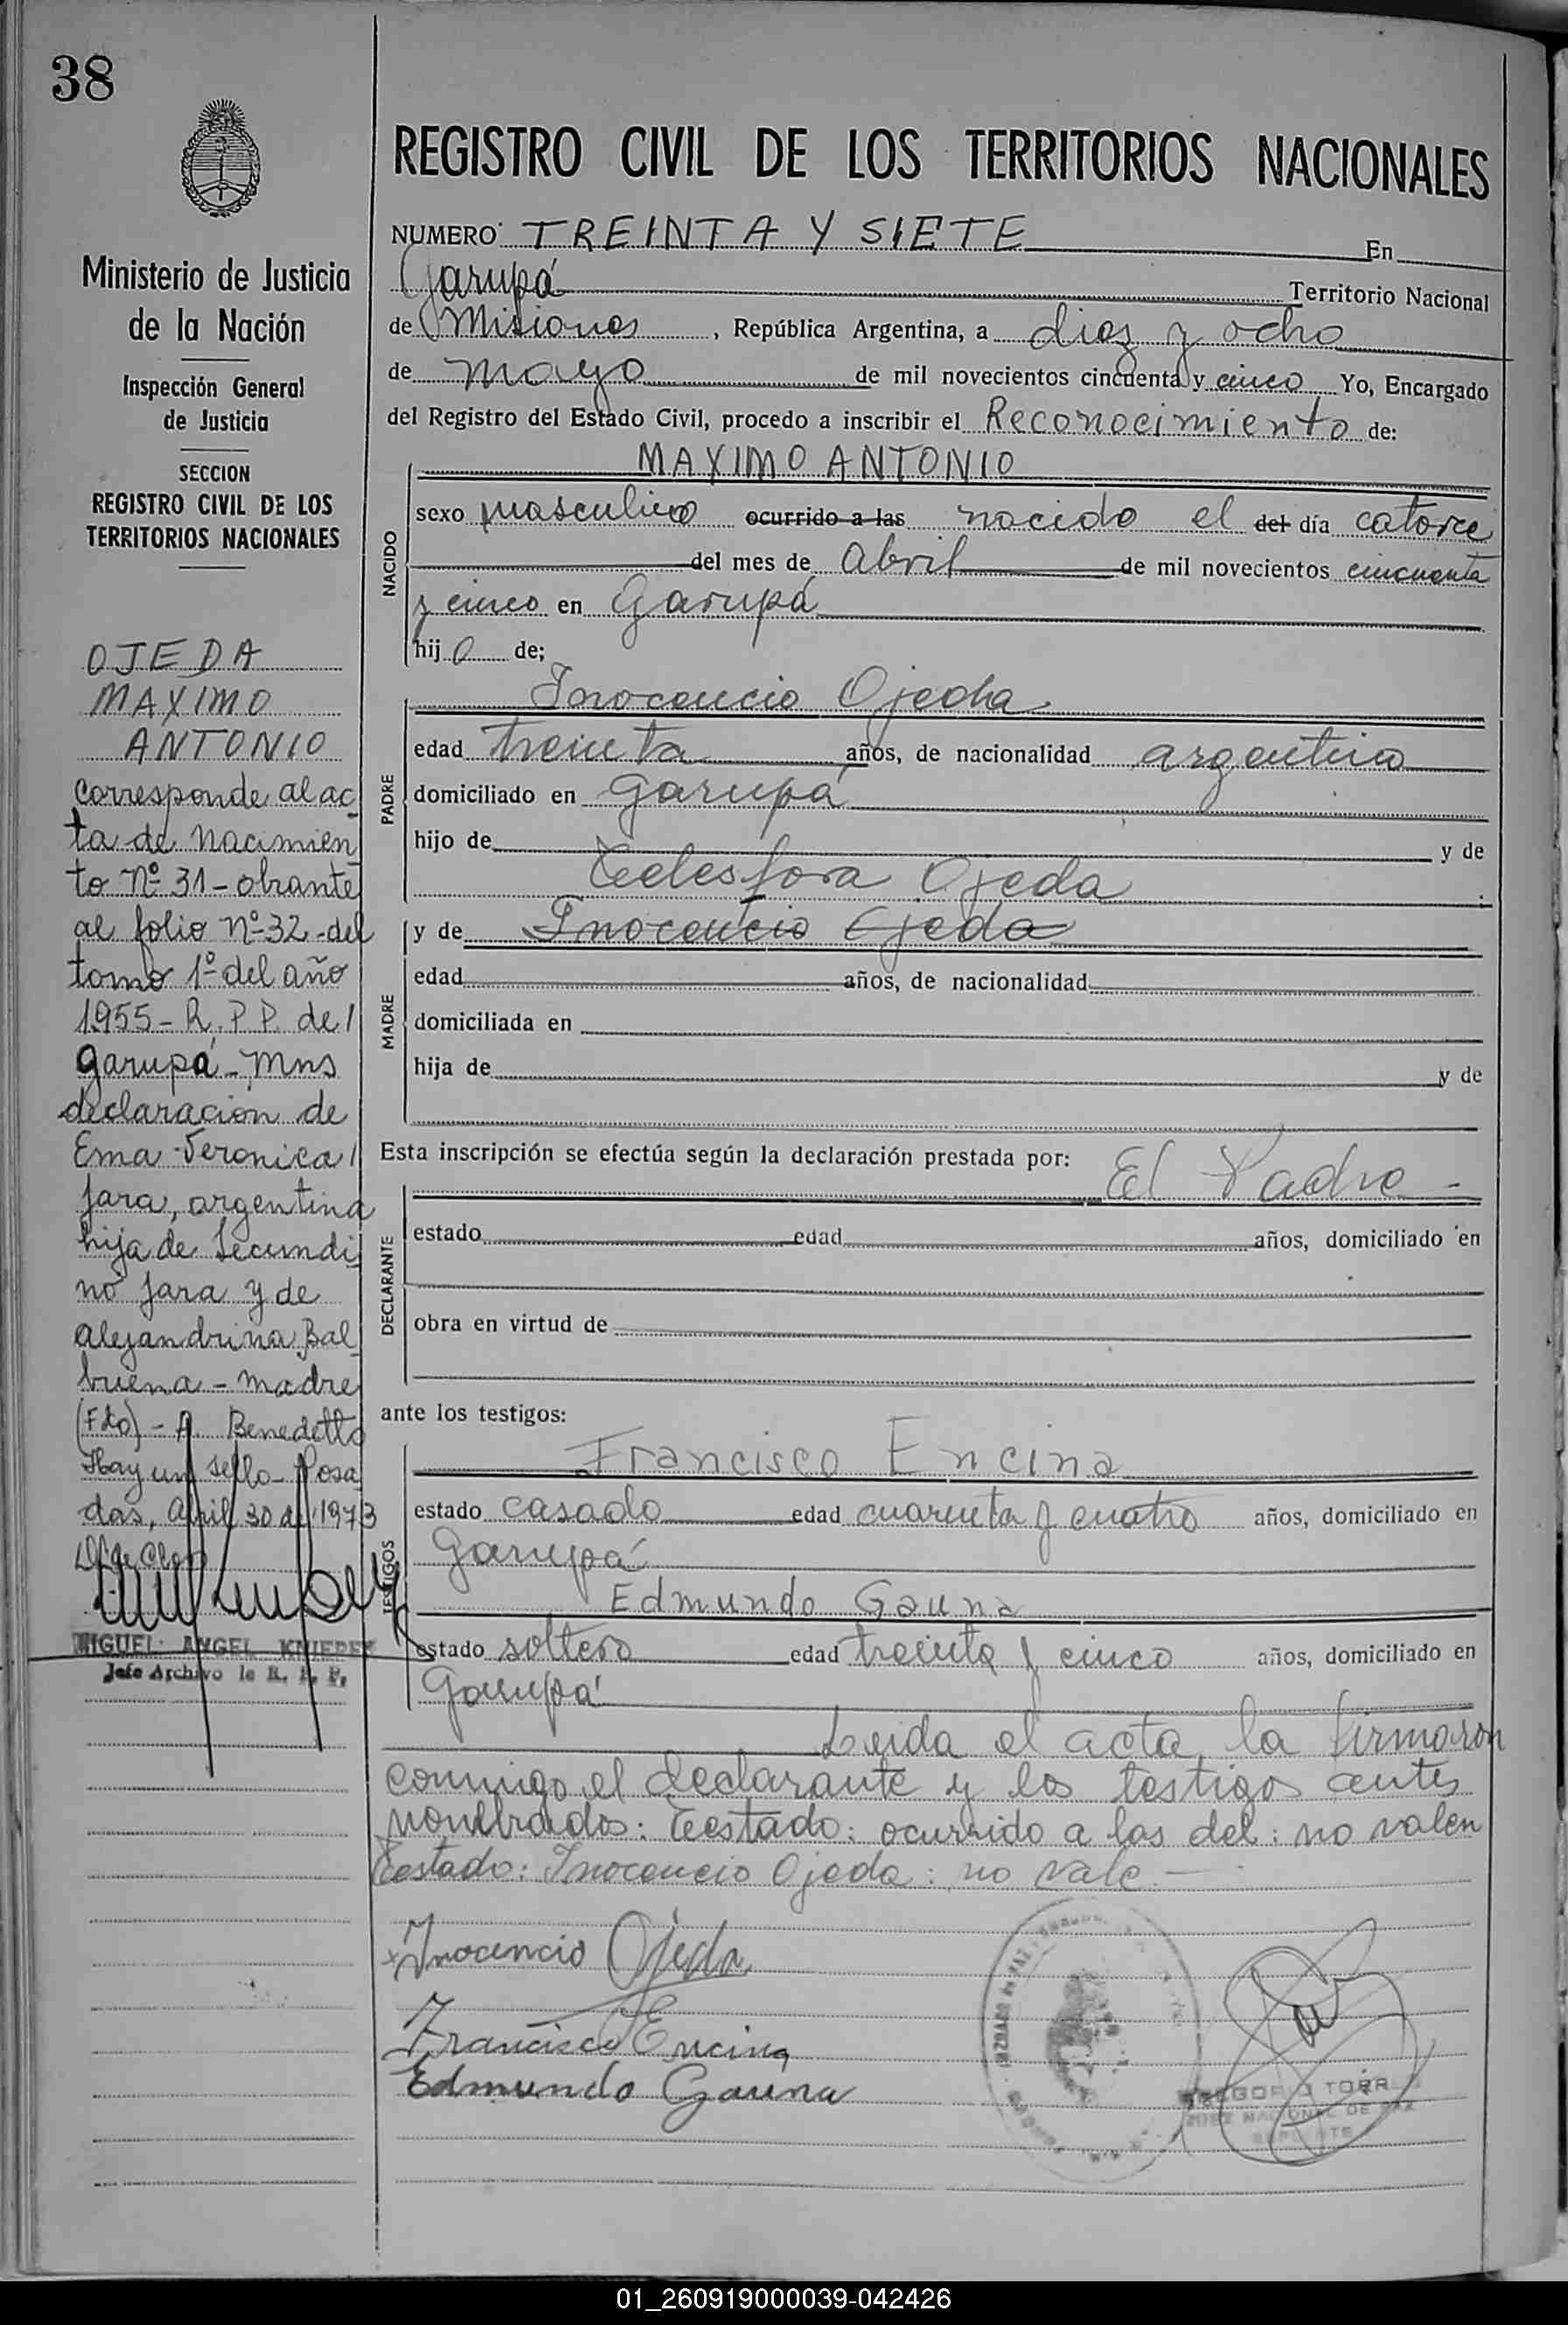 38
Ministerio de Justicia
de la Nación
Inspección General
de Justicia
SECCION
REGISTRO CIVIL DE LOS
TERRITORIOS NACIONALES
OJEDA
MAXIMO
ANTONIO
Corresponde al ac
ta de Nacimien
to Nº 31 - obrante
al folio Nº 32 - del
tomo 1º del año
1955 - R. P. P. de /
Garupá - Mns
declaración de
Ema Veronica /
Jara, argentina
hija de Secundi
no Jara y de
Alejandrina Bal
buena - madre
(Fdo) - A. Benedetto
Hay un sello - Posa
das, Abril 30 de 1973
MIGUEL ANGEL KNIEPER
Jefe Archivo de R. P. P.
REGISTRO CIVIL DE LOS TERRITORIOS NACIONALES
NUMERO TREINTA Y SIETE En
Garupá Territorio Nacional
de Misiones, República Argentina, a diez y ocho
de mayo de mil novecientos cincuenta y cinco Yo, Encargado
del Registro del Estado Civil, procedo a inscribir el Reconocimiento de:
MAXIMO ANTONIO
NACIDO
sexo masculino ocurrido a las nacido el del día catorce
del mes de Abril de mil novecientos cincuenta
y cinco en Garupá
hijo de;
PADRE
Inocencio Ojeda
edad treinta años, de nacionalidad argentino
domiciliado en Garupá
hijo de y de
Telesfora Ojeda ;
MADRE
y de Inocencio Ojeda
edad años, de nacionalidad
domiciliada en
hija de y de
Esta inscripción se efectúa según la declaración prestada por: El Padre -
DECLARANTE
estado edad años, domiciliado en
obra en virtud de
ante los testigos:
TESTIGOS
Francisco Encina
estado casado edad cuarenta y cuatro años, domiciliado en
Garupá
Edmundo Gauna
estado soltero edad treinta y cinco años, domiciliado en
Garupá
Leida el acta, la firmaron
conmigo el declarante y los testigos antes
nombrados: Testado: ocurrido a las del: no valen
Testado: Inocencio Ojeda: no vale. -
Inocencio Ojeda
Francisco Encina
Edmundo Gauna
JUZGADO DE PAZ
GREGORIO TORR
JUEZ NACIONAL DE PAZ
SUPLENTE
01_260919000039-042426